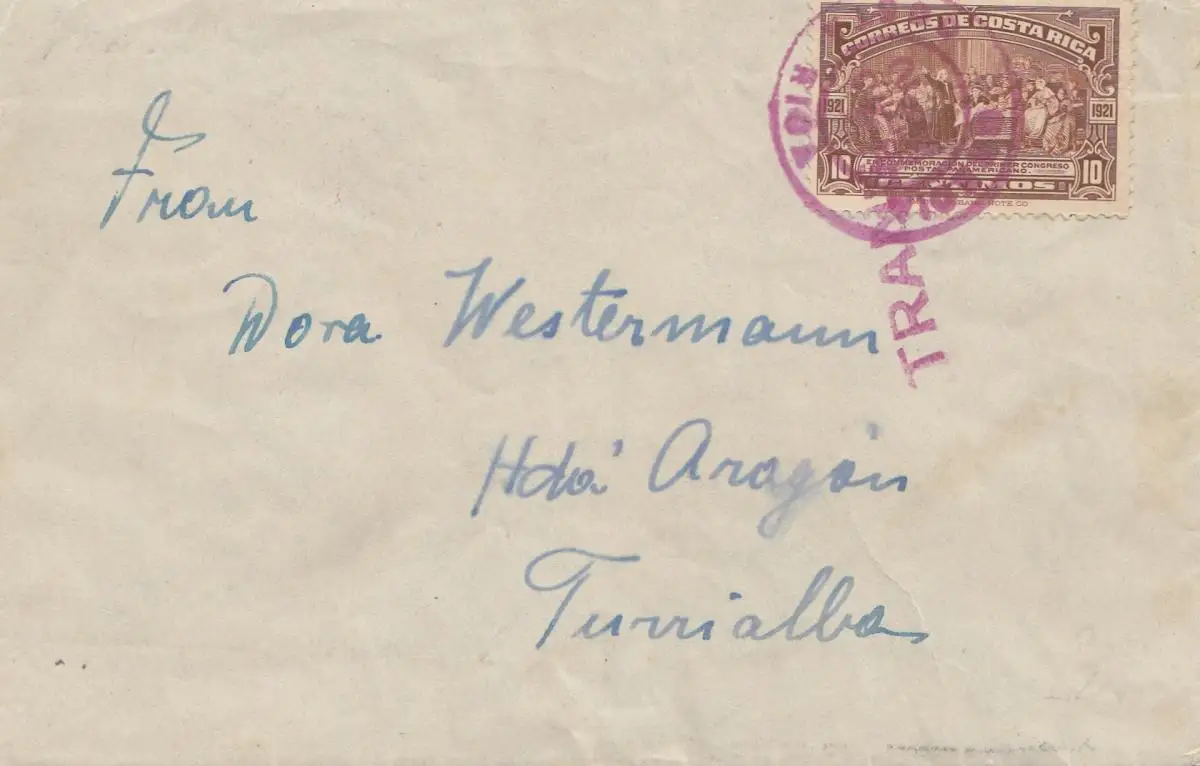 CORREOS DE COSTA RICA
1921 1921
10 10
EN CONMEMORACION DEL PRIMER CONGRESO
POSTAL PANAMERICANO.
CENTIMOS
NOTE CO
TRAN
From
Dora Westermann
Hda' Aragón
Turrialba